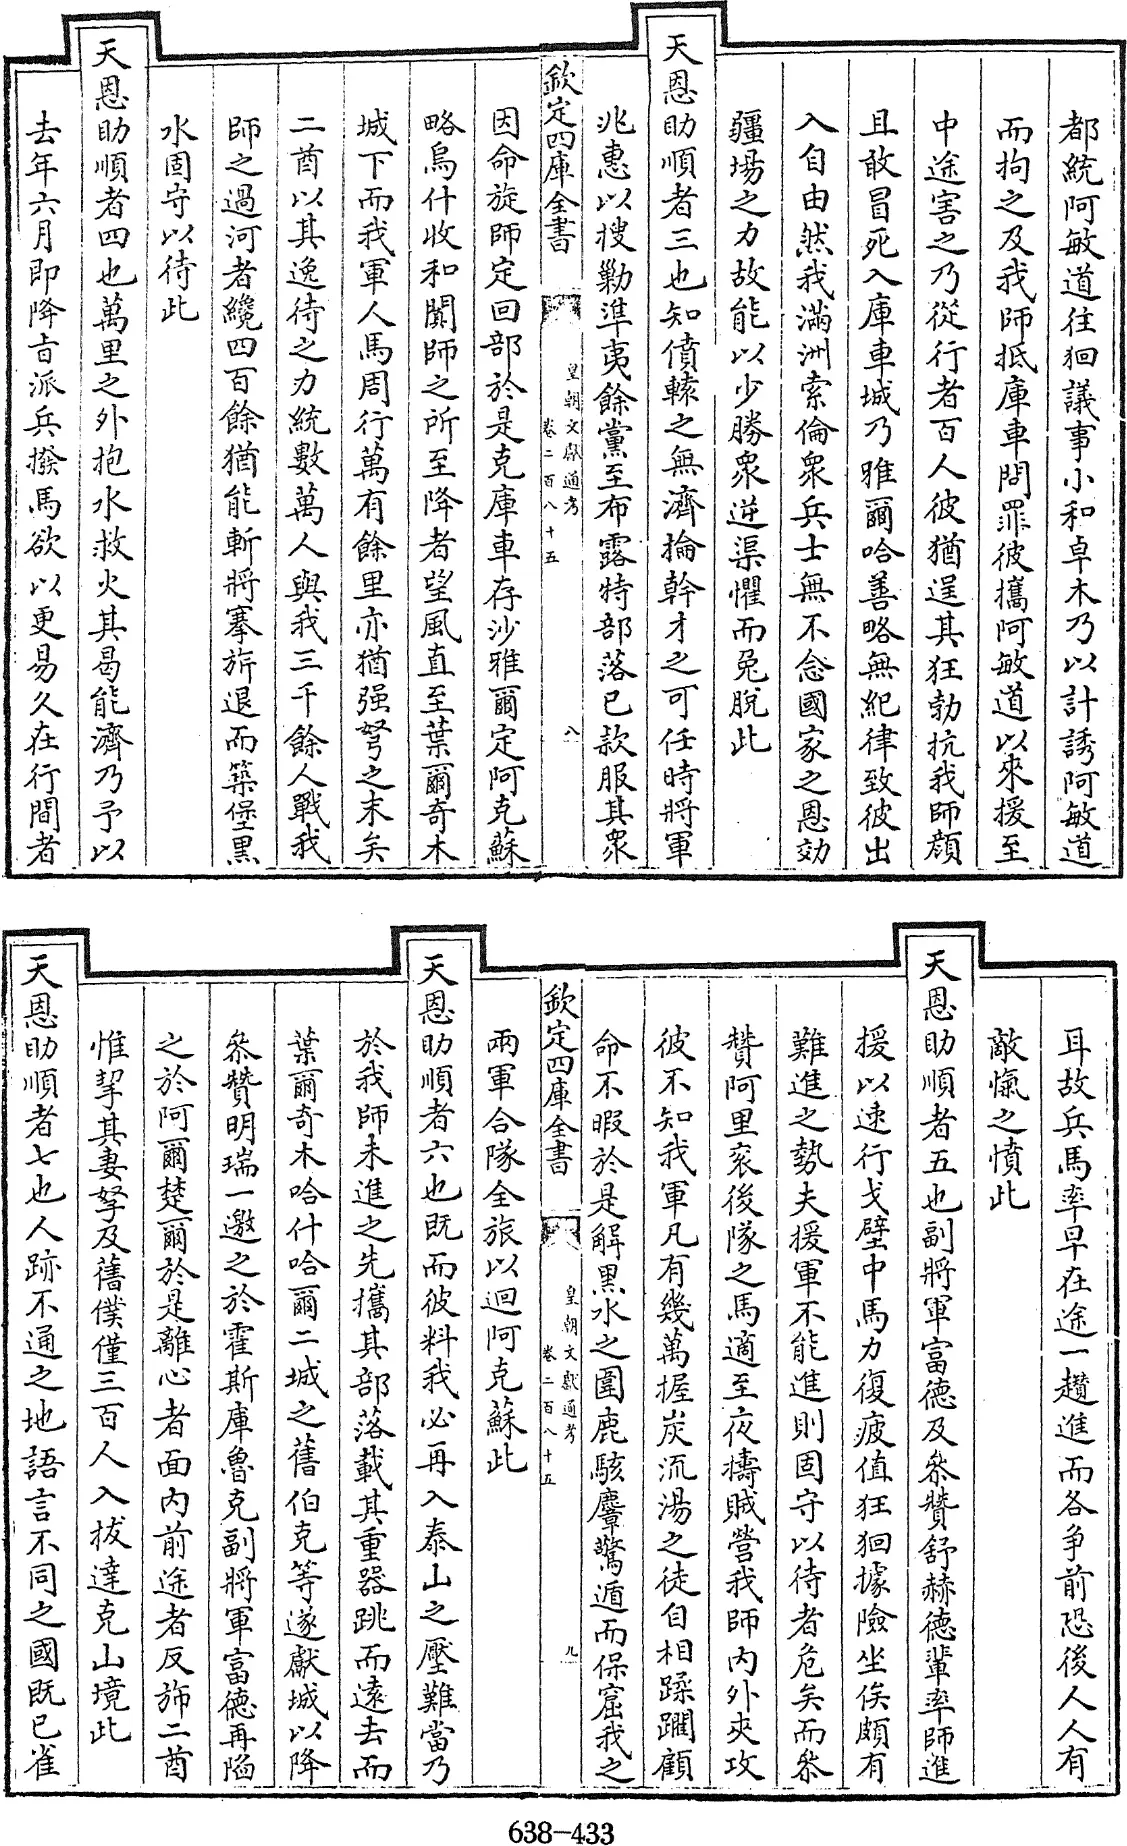 都統阿敏道往𢌞議事小和卓木乃以計誘阿敏道
而拘之及我師抵庫車問罪彼攜阿敏道以來援至
中途害之乃從行者百人彼猶逞其狂勃抗我師顔
且敢冒死入庫車城乃雅爾哈善略無紀律致彼出
入自由然我滿洲索倫衆兵士無不念國家之恩効
疆埸之力故能以少勝衆逆渠懼而免脫此
天恩助順者三也知僨轅之無濟掄幹才之可任時將軍
兆惠以搜勦準夷餘黨至布露特部落已款服其衆
欽定四庫全書
皇朝文獻通考
卷二百八十五
八
因命旋師定回部於是克庫車存沙雅爾定阿克蘇
略烏什收和闐師之所至降者望風直至葉爾奇木
城下而我軍人馬周行萬有餘里亦猶强弩之末矣
二酋以其逸待之力統數萬人與我三千餘人戰我
師之過河者纔四百餘猶能斬將搴旂退而築堡黑
水固守以待此
天恩助順者四也萬里之外抱水救火其曷能濟乃予以
去年六月即降㫖派兵撥馬欲以更易久在行間者
耳故兵馬率早在途一趲進而各争前恐後人人有
敵愾之憤此
天恩助順者五也副將軍富德及叅贊舒赫德輩率師進
援以速行戈壁中馬力復疲值狂𢌞據險坐俟頗有
難進之勢夫援軍不能進則固守以待者危矣而叅
贊阿里衮後隊之馬適至夜擣賊營我師内外夾攻
彼不知我軍凡有幾萬握炭流湯之徒自相蹂躙顧
命不暇於是解黑水之圍鹿駭麞驚遁而保窟我之
欽定四庫全書
皇朝文獻通考
卷二百八十五
九
兩軍合隊全旅以迴阿克蘇此
天恩助順者六也既而彼料我必再入泰山之壓難當乃
於我師未進之先攜其部落載其重器跳而遠去而
葉爾奇木哈什哈爾二城之舊伯克等遂獻城以降
叅贊明瑞一邀之於霍斯庫魯克副將軍富德再陷
之於阿爾楚爾於是離心者面内前途者反斾二酋
惟挈其妻孥及舊僕僅三百人入拔達克山境此
天恩助順者七也人跡不通之地語言不同之國既已雀
638-433